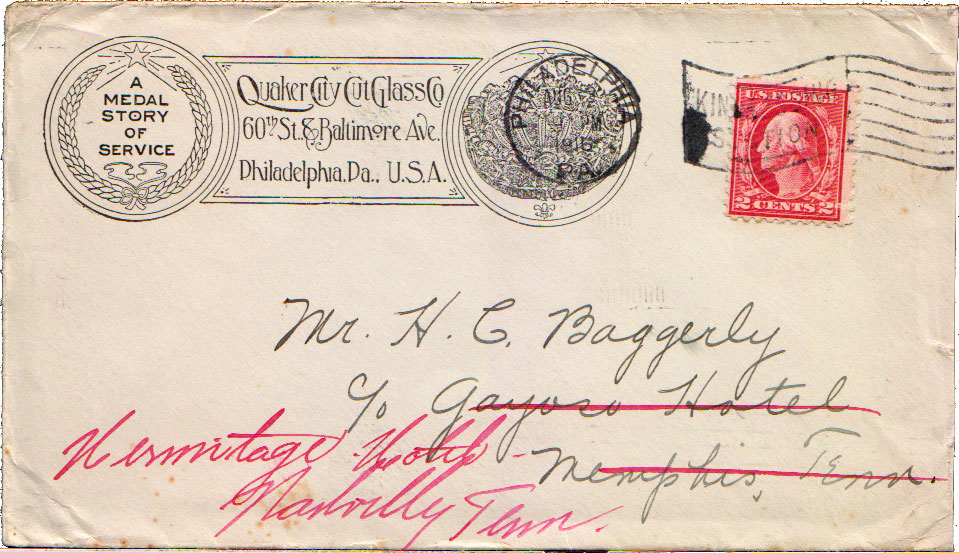 A
MEDAL
STORY
OF
SERVICE
Quaker City Cut Glass Co
60th St. & Baltimore Ave.
Philadelphia, Pa., U.S.A.
PHILADELPHIA
AUG
PM
1916
PA.
U.S. POSTAGE
2 CENTS 2
Mr. H. C. Baggerly
c/o Gayoso Hotel
Memphis, Tenn.
Hermitage Hotel
Nashville Tenn.